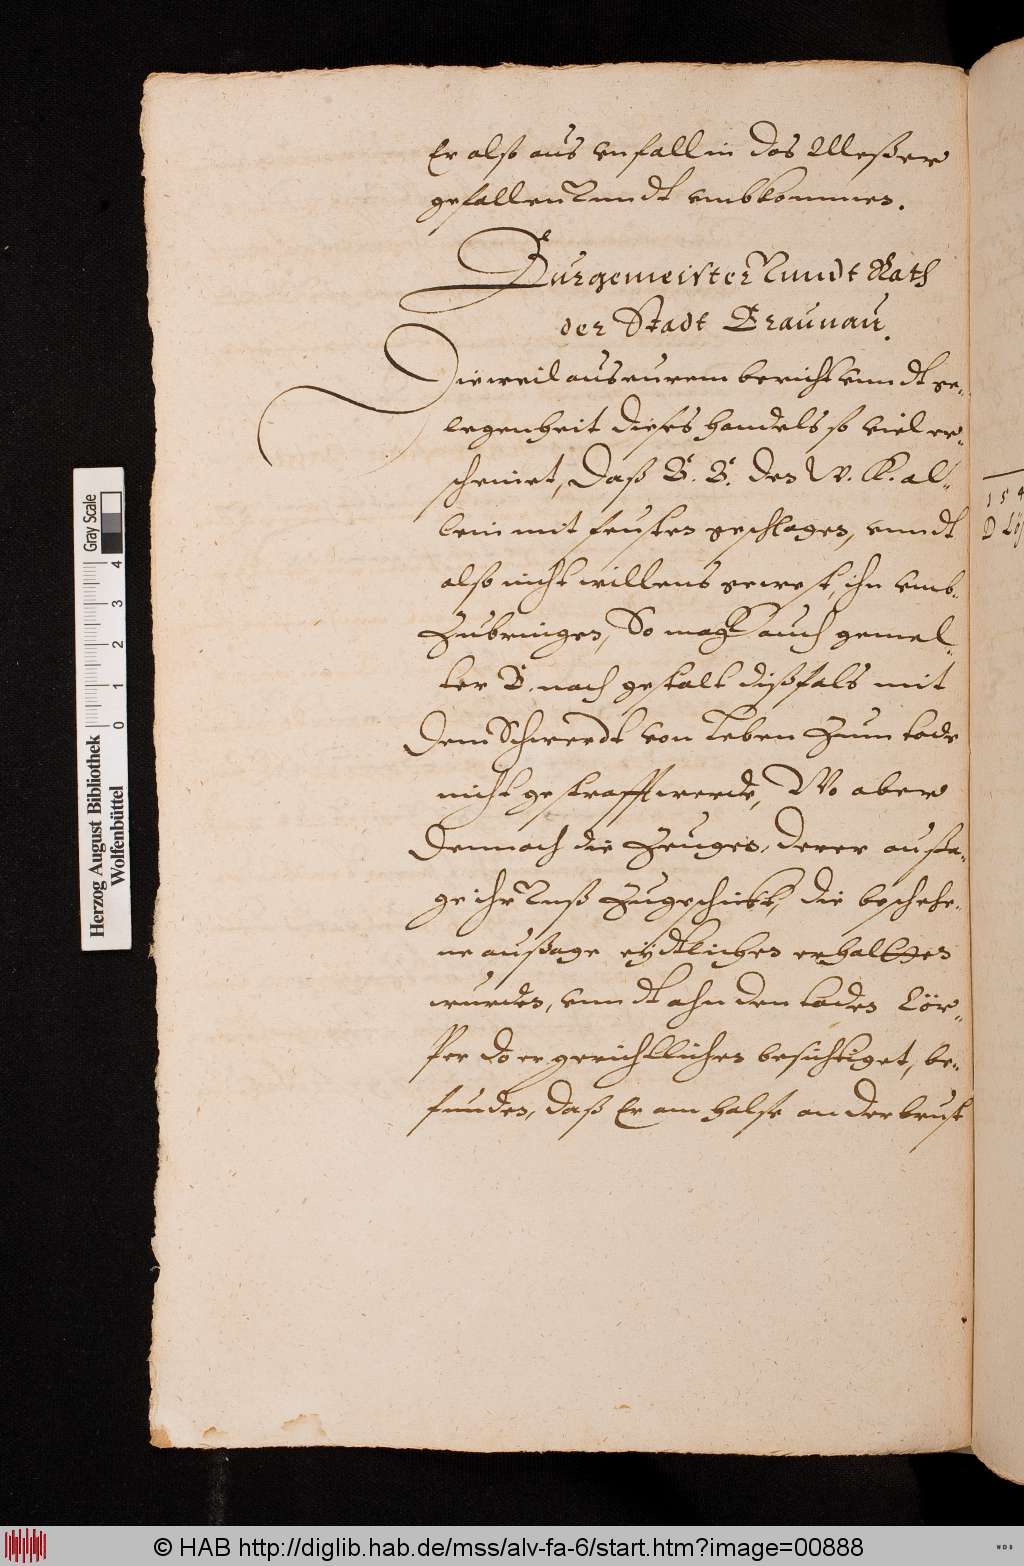 Er also aus unfall in das Messer
gefallen vnndt umbkommen.
Burgemeister vnndt Rath
der Stadt Braunau.
Dieweil aus eurem bericht vnndt ge-
legenheit dieses handels so viel er-
scheinet, daß B. B. den W. K. al-
lein mit feusten geschlagen, vnndt
also nicht willens gewest, ihn vmb-
zubringen, So mag auch gemel-
ter B. nach gestalt dißfals mit
dem Schwerdt von leben zum tode
nicht gestrafft werde, Wo aber
dennoch die Zeugen, derer aussa-
ge ihr vnß zugeschickt, die beschehe-
ne aussage eydtlichen erhalten
wurden, vnndt ahn den todten Cör-
per do er gerichtlichen besichtiget, be-
funden, daß Er am halse an der brust
154
D Lös
Herzog August Bibliothek
Wolfenbüttel
0 1 2 3 4
Gray Scale
© HAB http://diglib.hab.de/mss/alv-fa-6/start.htm?image=00888
WDB